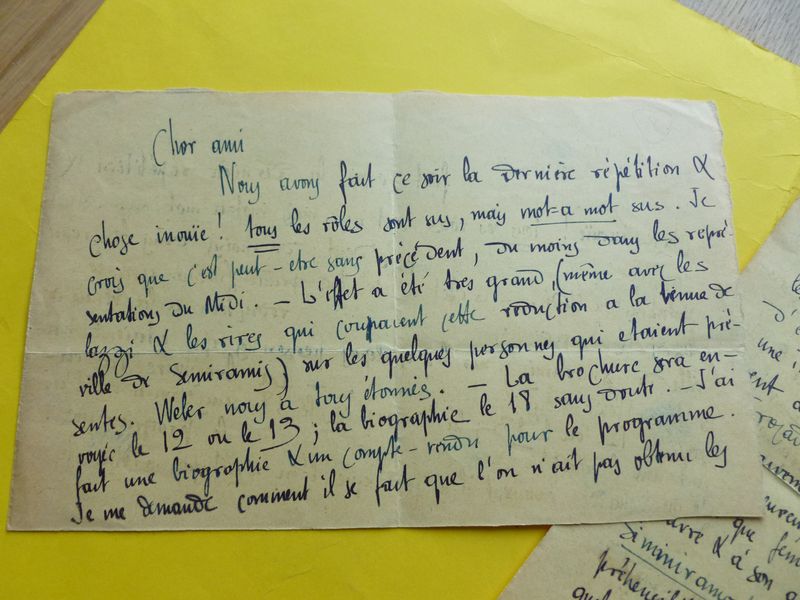 Cher ami
Nous avons fait ce soir la dernière répétition &
chose inouïe! tous les rôles sont sus, mais mot-à mot sus. Je
crois que c'est peut-etre sans précédent, du moins dans les repré-
sentations du Midi. — L'effet a été tres grand, (même avec les
lazzi & les rires qui coupaient cette réduction a la tenue de
ville de Semiramis) sur les quelques personnes qui etaient pré-
sentes. Weler nous a tous étonnés. — La brochure sera en-
voyée le 12 ou le 13; la biographie le 18 sans doute. — J'ai
fait une biographie & un compte-rendu pour le programme.
Je me demande comment il se fait que l'on n'ait pas obtenu les
une
que fem
& à son a
Siminiram